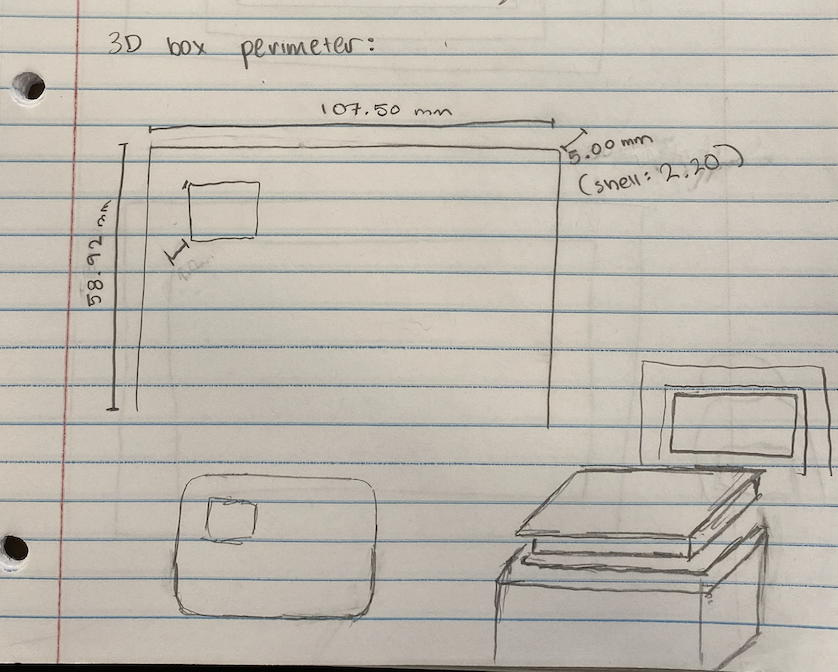 3D box perimeter:
107.50 mm
5.00 mm
(shell: 2.20)
58.92 mm